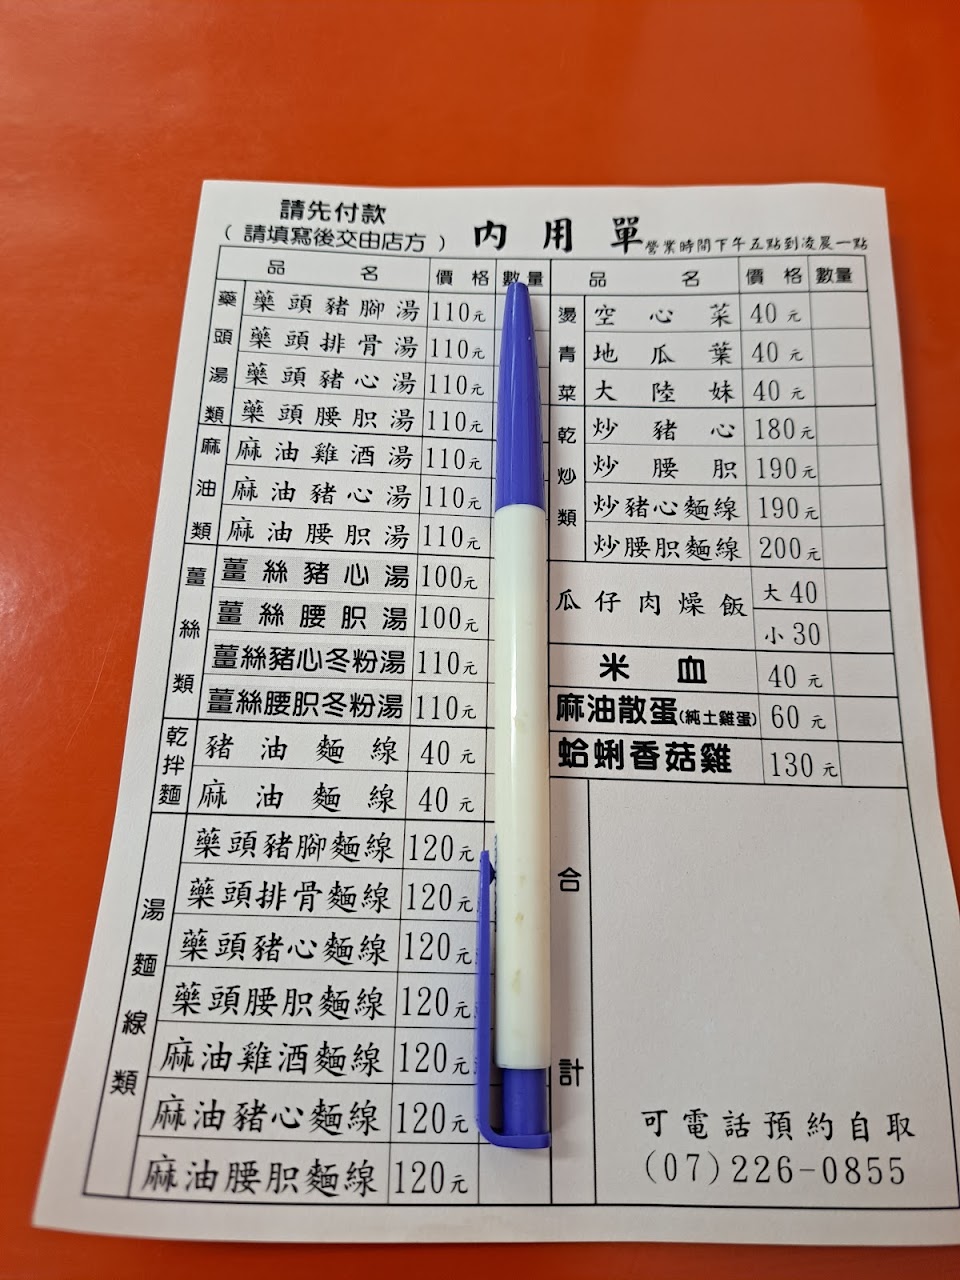 請先付款
(請填寫後交由店方)
內用單
營業時間下午五點到凌晨一點
品名 價格 數量
藥頭湯類
藥頭豬腳湯 110元
藥頭排骨湯 110元
藥頭豬心湯 110元
藥頭腰胑湯 110元
麻油類
麻油雞酒湯 110元
麻油豬心湯 110元
麻油腰胑湯 110元
薑絲類
薑絲豬心湯 100元
薑絲腰胑湯 100元
薑絲豬心冬粉湯 110元
薑絲腰胑冬粉湯 110元
乾拌麵
豬油麵線 40元
麻油麵線 40元
湯麵線類
藥頭豬腳麵線 120元
藥頭排骨麵線 120元
藥頭豬心麵線 120元
藥頭腰胑麵線 120元
麻油雞酒麵線 120元
麻油豬心麵線 120元
麻油腰胑麵線 120元
品名 價格 數量
燙青菜
空心菜 40元
地瓜葉 40元
大陸妹 40元
乾炒類
炒豬心 180元
炒腰胑 190元
炒豬心麵線 190元
炒腰胑麵線 200元
瓜仔肉燥飯 大40
小30
米血 40元
麻油散蛋(純土雞蛋) 60元
蛤蜊香菇雞 130元
合計
可電話預約自取
(07)226-0855